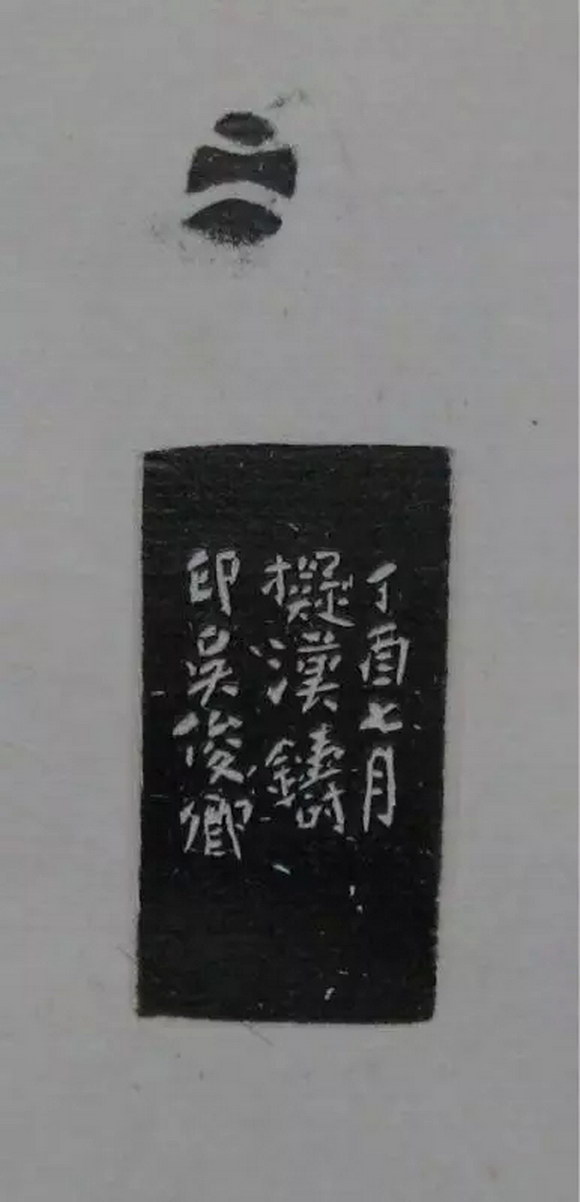 丁酉七月
擬漢鑄
印吳俊卿